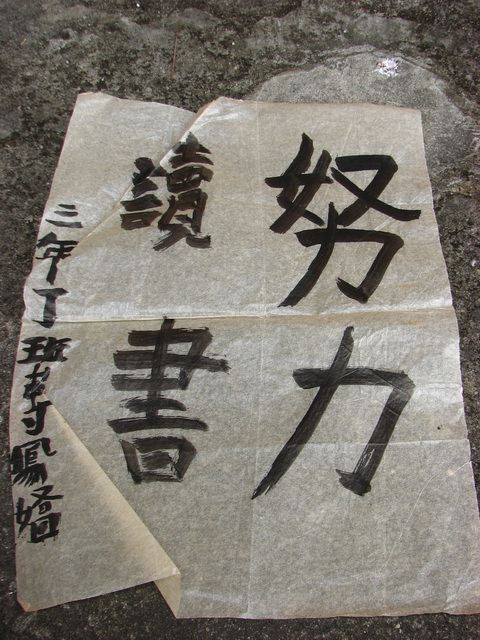 努力
讀書
三年丁班李鳳嬌